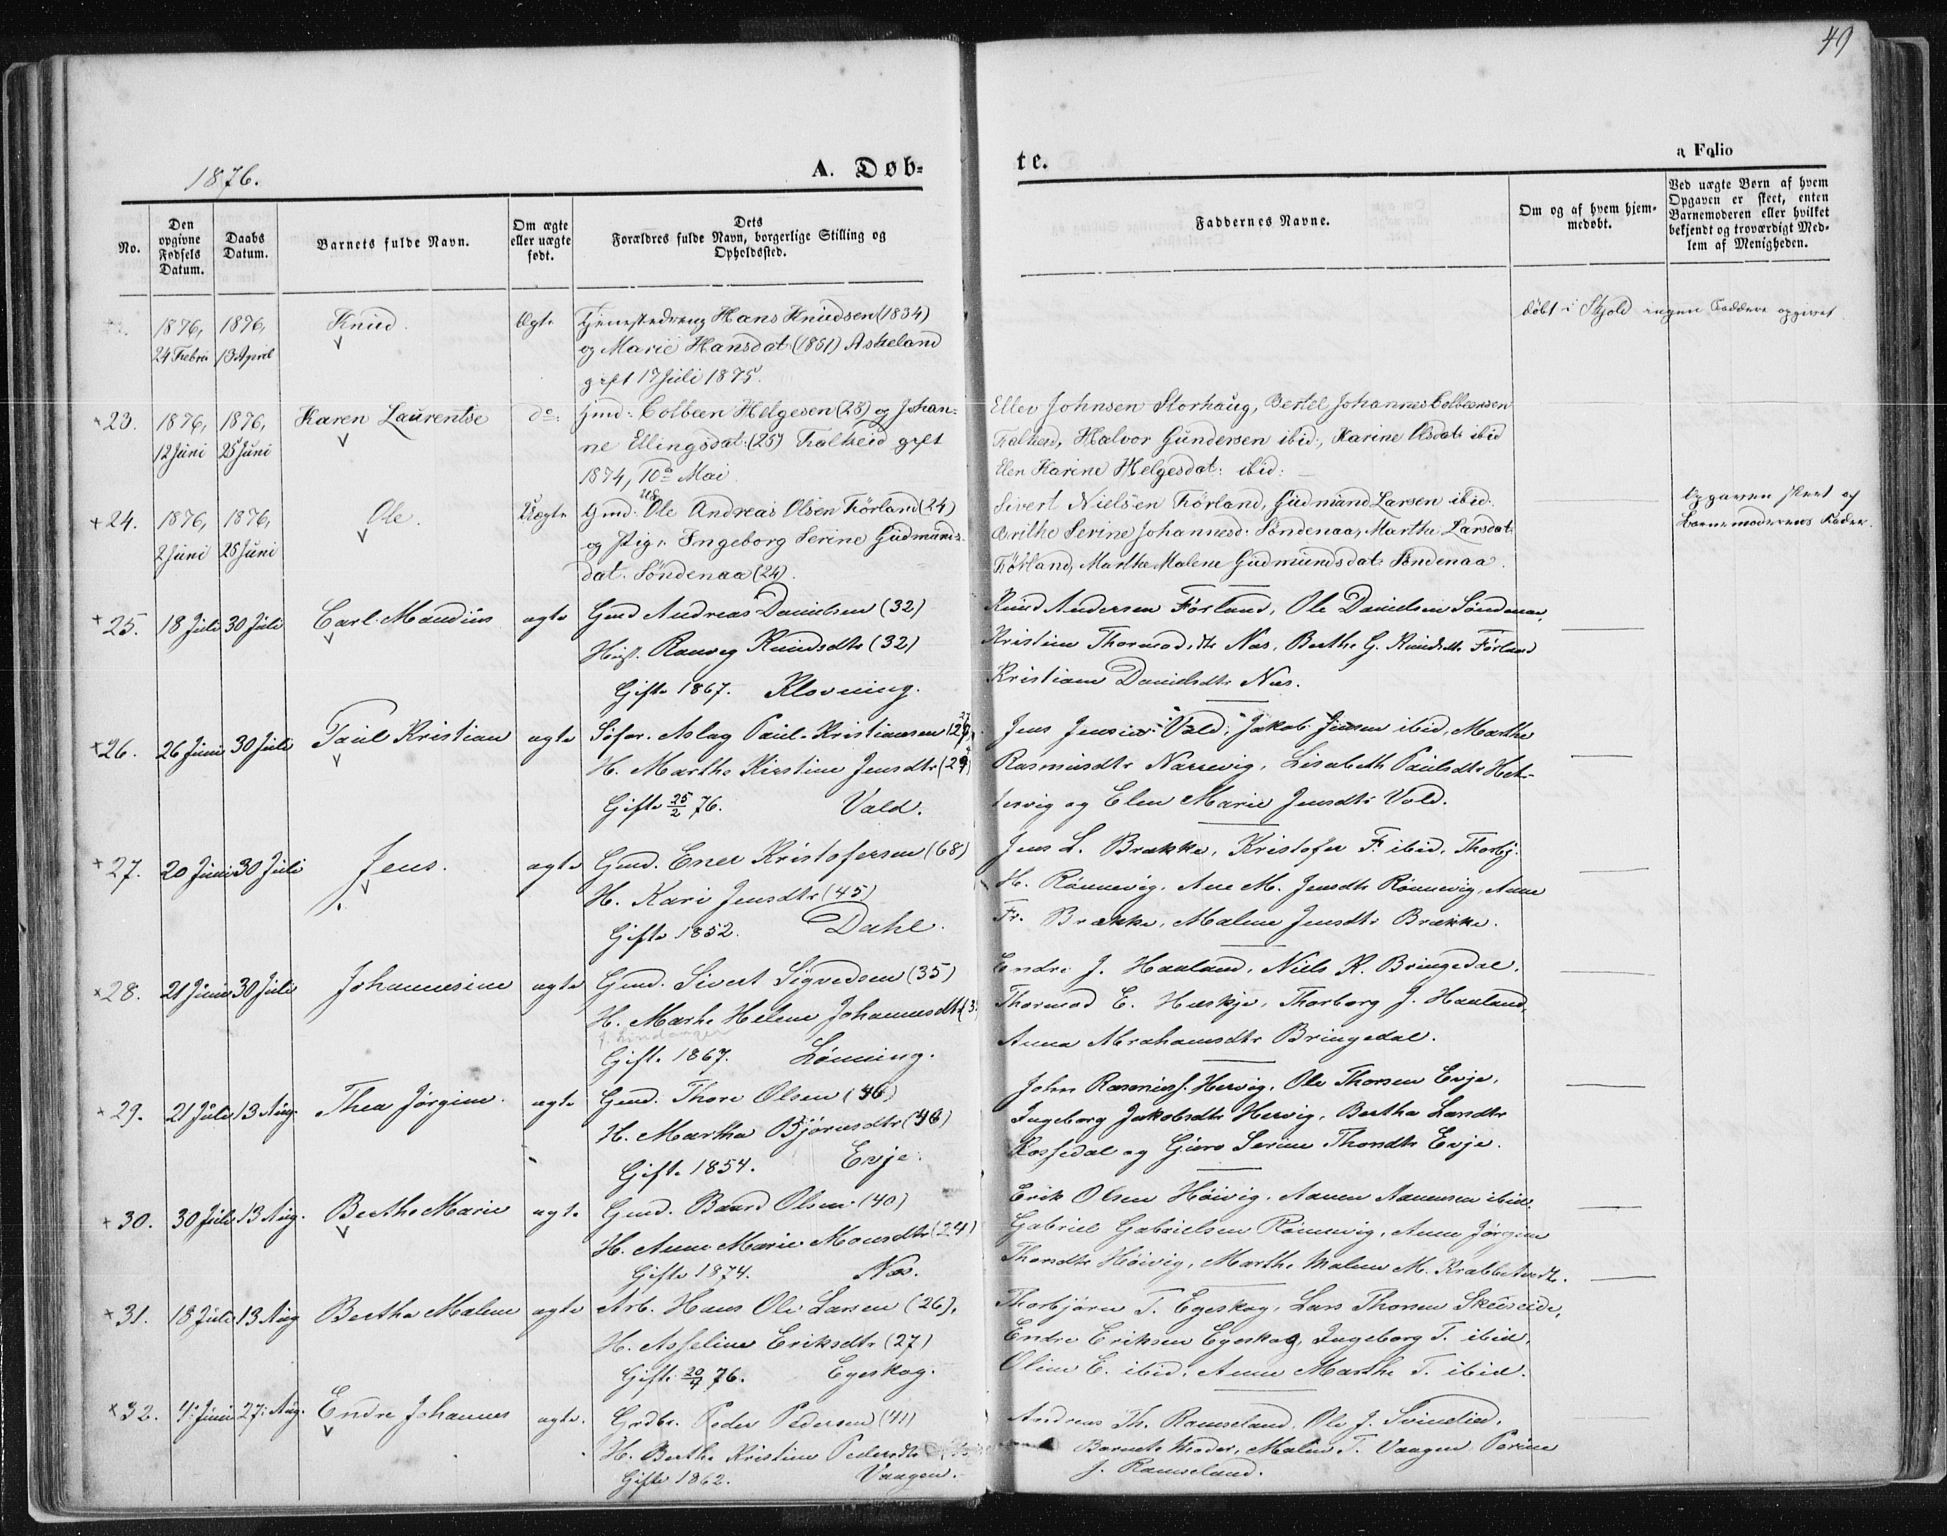 49
1876.
A. Døb-
te.
a Folio
No.
Den opgivne Fødsels Datum.
Daabs Datum.
Barnets fulde Navn.
Om ægte eller uægte født.
Dets Forældres fulde Navn, borgerlige Stilling og Opholdssted.
Faddernes Navne.
Om og af hvem hjemmedøbt.
Ved uægte Børn af hvem Opgaven er skeet, enten Barnemoderen eller hvilket bekjendt og troværdigt Medlem af Menigheden.
1876, 24 Febr. 1876, 13 April Knud. Ægte Tjenestedreng Hans Knudsen (1834)
og Marie Hansdat. (1851) Askeland
gift 17 Juli 1875.
døbt i Skjold ingen Faddere opgivet
+23. 1876, 12 Juni 1876, 25 Juni Karen Laurentse do: Gmd: Colbeen Helgesen (28) og Johan-
ne Ellingsdat: (25) Falkeid gift
1874, 10de Mai
Eller Johnsen Storhaug, Bertel Johannes Colbeensen
Falkeid, Halvor Gundersen ibid:, Karine Olsdat: ibid
Elen Karine Helgesdat: ibid:
+24. 1876, 2 Juni 1876, 25 Juni Ole. Uægte Ug Gmd: Ole Andreas Olsen Førland (24)
og Pige Ingeborg Serine Gudmunds-
dat. Søndenaa (24).
Sivert Nielsen Førland, Gudmund Larsen ibid.
Brithe Serine Johannesd. Søndenaa, Marthe Larsdat:
Førland, Marthe Malene Gudmundsdat: Søndenaa.
Opgaven skeet af
Barnemoderens Fader.
+25. 18 Juli 30 Juli Carl Mandius ægte Gmd Andreas Danielsen (32)
Hust. Ranveg Knudsdtr (32)
Gifte 1867. Klovning.
Knud Andersen Førland, Ole Danielsen Søndenaa,
Kristine Thormodsdtr Næs, Berthe G. Knudsdtr Førland
Kristiane Danielsdtr Næs.
+26. 26 Juni 30 Juli Paul Kristian ægte Søfar. Aslag Paul Kristiansen
H. Marthe Kirstine Jensdtr (29)
Gifte 25/2 76. Vald.
Jens Jensen Vold, Jakob Jensen ibid, Marthe
Rasmusdtr Narrevig, Lisabeth Paulsdtr Het-
lesvig og Elen Marie Jensdtr Vold.
+27. 20 Juni 30 Juli Jens. ægte Gmd. Ener Kristofersen (68)
H. Kari Jensdtr (45)
Gifte 1852. Dahl.
Jens L. Brække, Kristofer F. ibid, Thorbj.
H. Rönnevig, Ane M. Jensdtr Rönnevig, Anne
Fr. Brække, Malene Jensdtr Brække.
+28. 21 Juni 30 Juli Johannesine ægte Gmd. Sivert Sigvedsen (35)
H. Marthe Helene Johannesdtr (3
Gifte 1867. Lønning.
Endre J. Haaland, Niels K. Bringedal,
Thormod E. Heskje, Thorborg J. Haaland,
Anna Abrahamsdtr Bringedal.
+29. 21 Juli 13 Aug. Thea Jørgine ægte Gmd. Thore Olsen (46)
H. Martha Bjørnsdtr (46)
Gifte 1854. Evje.
John Rasmuss. Hervig, Ole Thorsen Evje,
Ingeborg Jakobsdtr Hervig, Bertha Larsdtr
Rossedal og Guro Serine Thorsdtr Evje.
+30. 30 Juli 13 Aug. Berthe Marie ægte Gmd. Baard Olsen (40)
H. Anne Marie Monsdtr (24)
Gifte 1874. Næs.
Erik Olsen Höivig, Aanen Aanensen ibid.
Gabriel Gabrielsen Rönnevig, Anne Jørgine
Thorsdtr Höivig, Marthe Malene M. Krabbetvedt.
+31. 18 Juli 13 Aug Berthe Malene ægte Arb. Hans Ole Larsen (26),
H. Asseline Eriksdtr (27)
Gifte 20/4 76. Egeskog.
Thorbjørn T. Egeskog, Lars Thorsen Skeiseide,
Endre Eriksen Egeskog, Ingeborg T. ibid,
Oline E. ibid, Anne Marthe T. ibid.
+32. 4: Juni 27: Aug. Endre Johannes ægte. Grdbr. Peder Pedersen (41)
H. Berthe Kristine Pedersdtr
Gifte 1862. Vaagen.
Andreas Th. Ramseland, Ole J. Svinelied,
Barnets Moder, Malen T. Vaagen Perine
J. Ramseland.